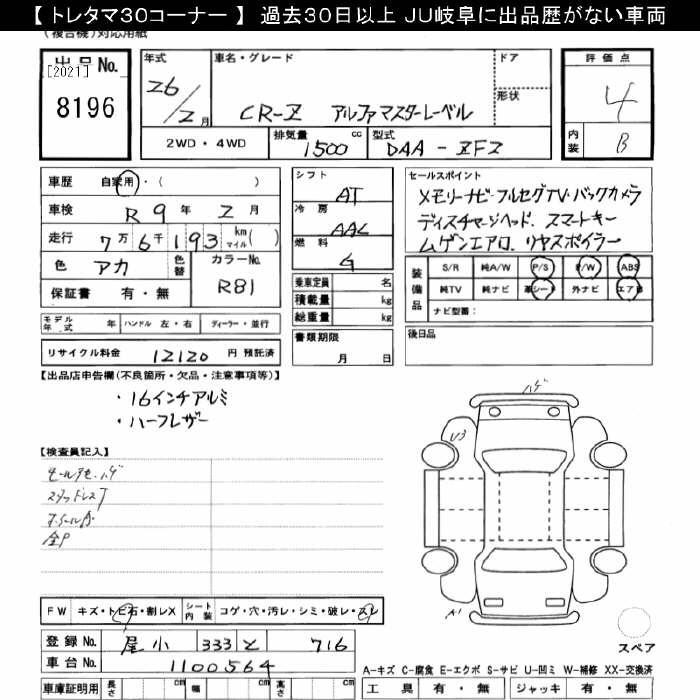 【 トレタマ30コーナー 】 過去30日以上 JU岐阜に出品歴がない車両
(複合機)対応用紙
出品No. [2021] 8196
年式 26/2月
車名・グレード CR-Z アルファマスターレーベル
ドア
形状
2WD・4WD
排気量 1500 cc
型式 DAA-ZF2
評価点 4
内装 B
車歴 自家用・( )
車検 R9年 2月
走行 7万6千193 km マイル( )
色 アカ 色替 カラーNo. R81
保証書 有・無
シフト AT
冷房 AAC
燃料 G
乗車定員 名
積載量 kg
総重量 kg
セールスポイント
メモリーナビ・フルセグTV・バックカメラ
ディスチャージヘッド. スマートキー
ムゲンエアロ. リヤスポイラー
装備品 S/R 純A/W P/S P/W ABS
純TV 純ナビ 革シート 外ナビ エアB
ナビ型番:
モデル年式 年 ハンドル 左・右 ディーラー・並行
書類期限 月 日
後日品
リサイクル料金 12120 円 預託済
【出品店申告欄(不良箇所・欠品・注意事項等)】
・16インチアルミ
・ハーフレザー
ハゲ
U3
【検査員記入】
スタッドレスT
ホイールA
全P
A1
FW キズ・トビ石・割レX シート内装 コゲ・穴・汚レ・シミ・破レ・スレ
登録No. 尾小 333 と 716
車台No. 1100564
スペア
A-キズ C-腐食 E-エクボ S-サビ U-凹ミ W-補修 XX-交換済
車庫証明用 長さ cm 幅 cm 高さ cm
工具 有・無 ジャッキ 有・無